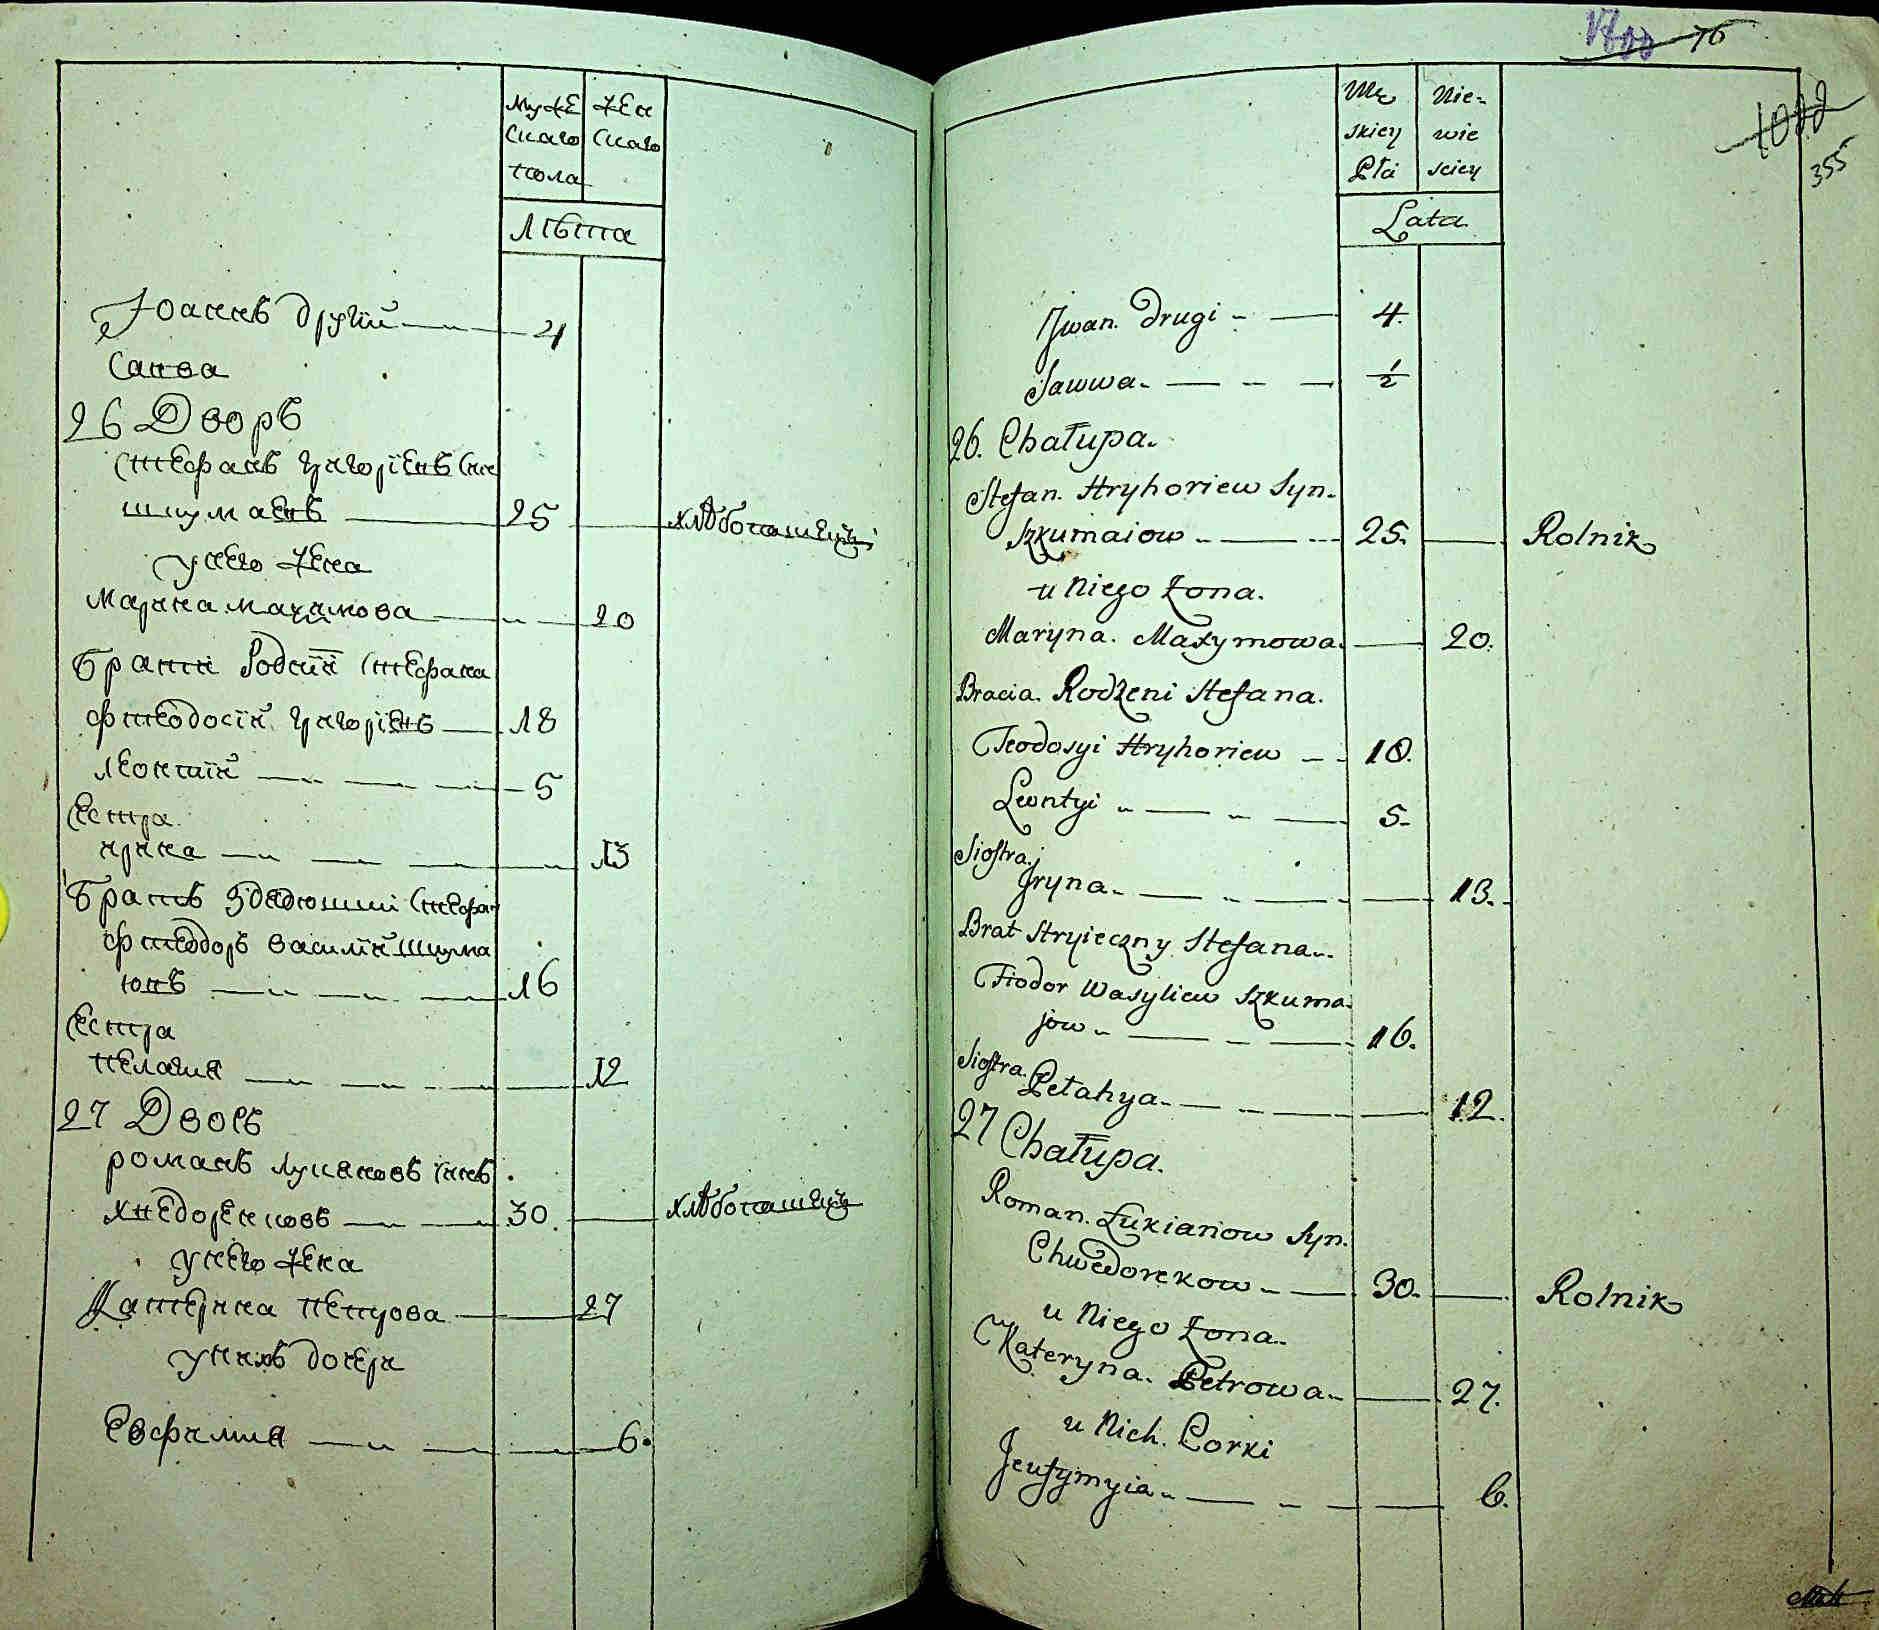 МужЕ
скаго
пола
жЕн
скаго
лѣта
Иоаннъ другий 4
Савва
26 Дворъ
стЕфанъ григориЕвъ снъ
шкумаЕвъ 25 хлѣбопашЕцъ
у нЕго жЕна
марина маѯимова 20
Брати родни стЕфана
фтеодосий григориЕвъ 18
лЕонтий 5
сЕстра
ирина 13
Братъ стЕфа
фтеодоръ василиЕвъ шкума
ювъ 16
сЕстра
пЕлагия 12
27 Дворъ
романъ лукяновъ снъ
хвЕдорЕнковъ 30 хлѣбопашЕцъ
у нЕго жЕна
КатЕрина пЕтрова 27
у нихъ дочЕри
Евфимия 6
76
1022
355
Mę
skiey
Płci
Nie-
wie
sciey
Lata
Jwan. Drugi 4.
Sawwa. 1/2
26. Chałupa.
Stefan. Hryhoriew Syn.
Szkumaiow 25. Rolnik
u Niego Żona.
Maryna. Maxymowa. 20.
Bracia. Rodzeni Stefana.
Teodosyi Hryhoriew 18.
Lewntyi 5.
Siostra.
Jryna. 13.
Brat Stryieczny Stefana.
Fiodor Wasyliew Szkuma.
jow 16.
Siostra.
Pełahya. 12.
27 Chałupa.
Roman. Łukianow Syn.
Chwedorekow 30. Rolnik
u Niego Żona.
Kateryna. Petrowa. 27.
u Nich. Corki
Jeufymyia 6.